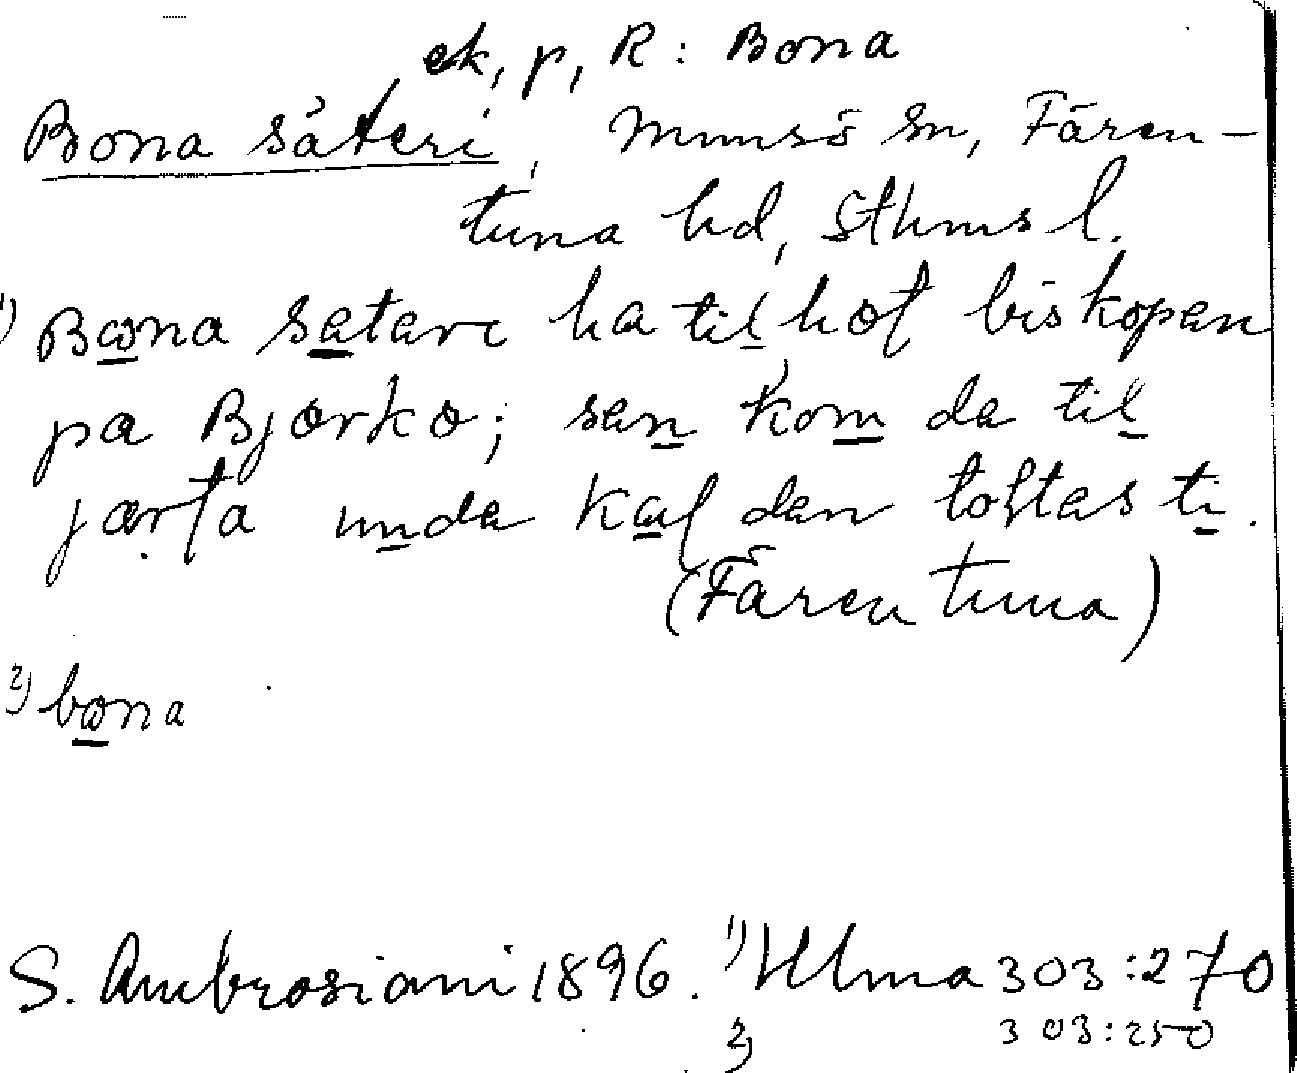 ek, p, R: Bona
Bona säteri, Munsö sn, Fären-
tuna hd, Sthms l.
1) Bωna satarı ha til høf biskopan
pa Bjørko; san kom da til
jærta unda Kaļ dan toļtas ti.
(Färentuna)
2) bωna
S. Ambrosiani 1896. 1) Ulma 303:270
2) 303:250